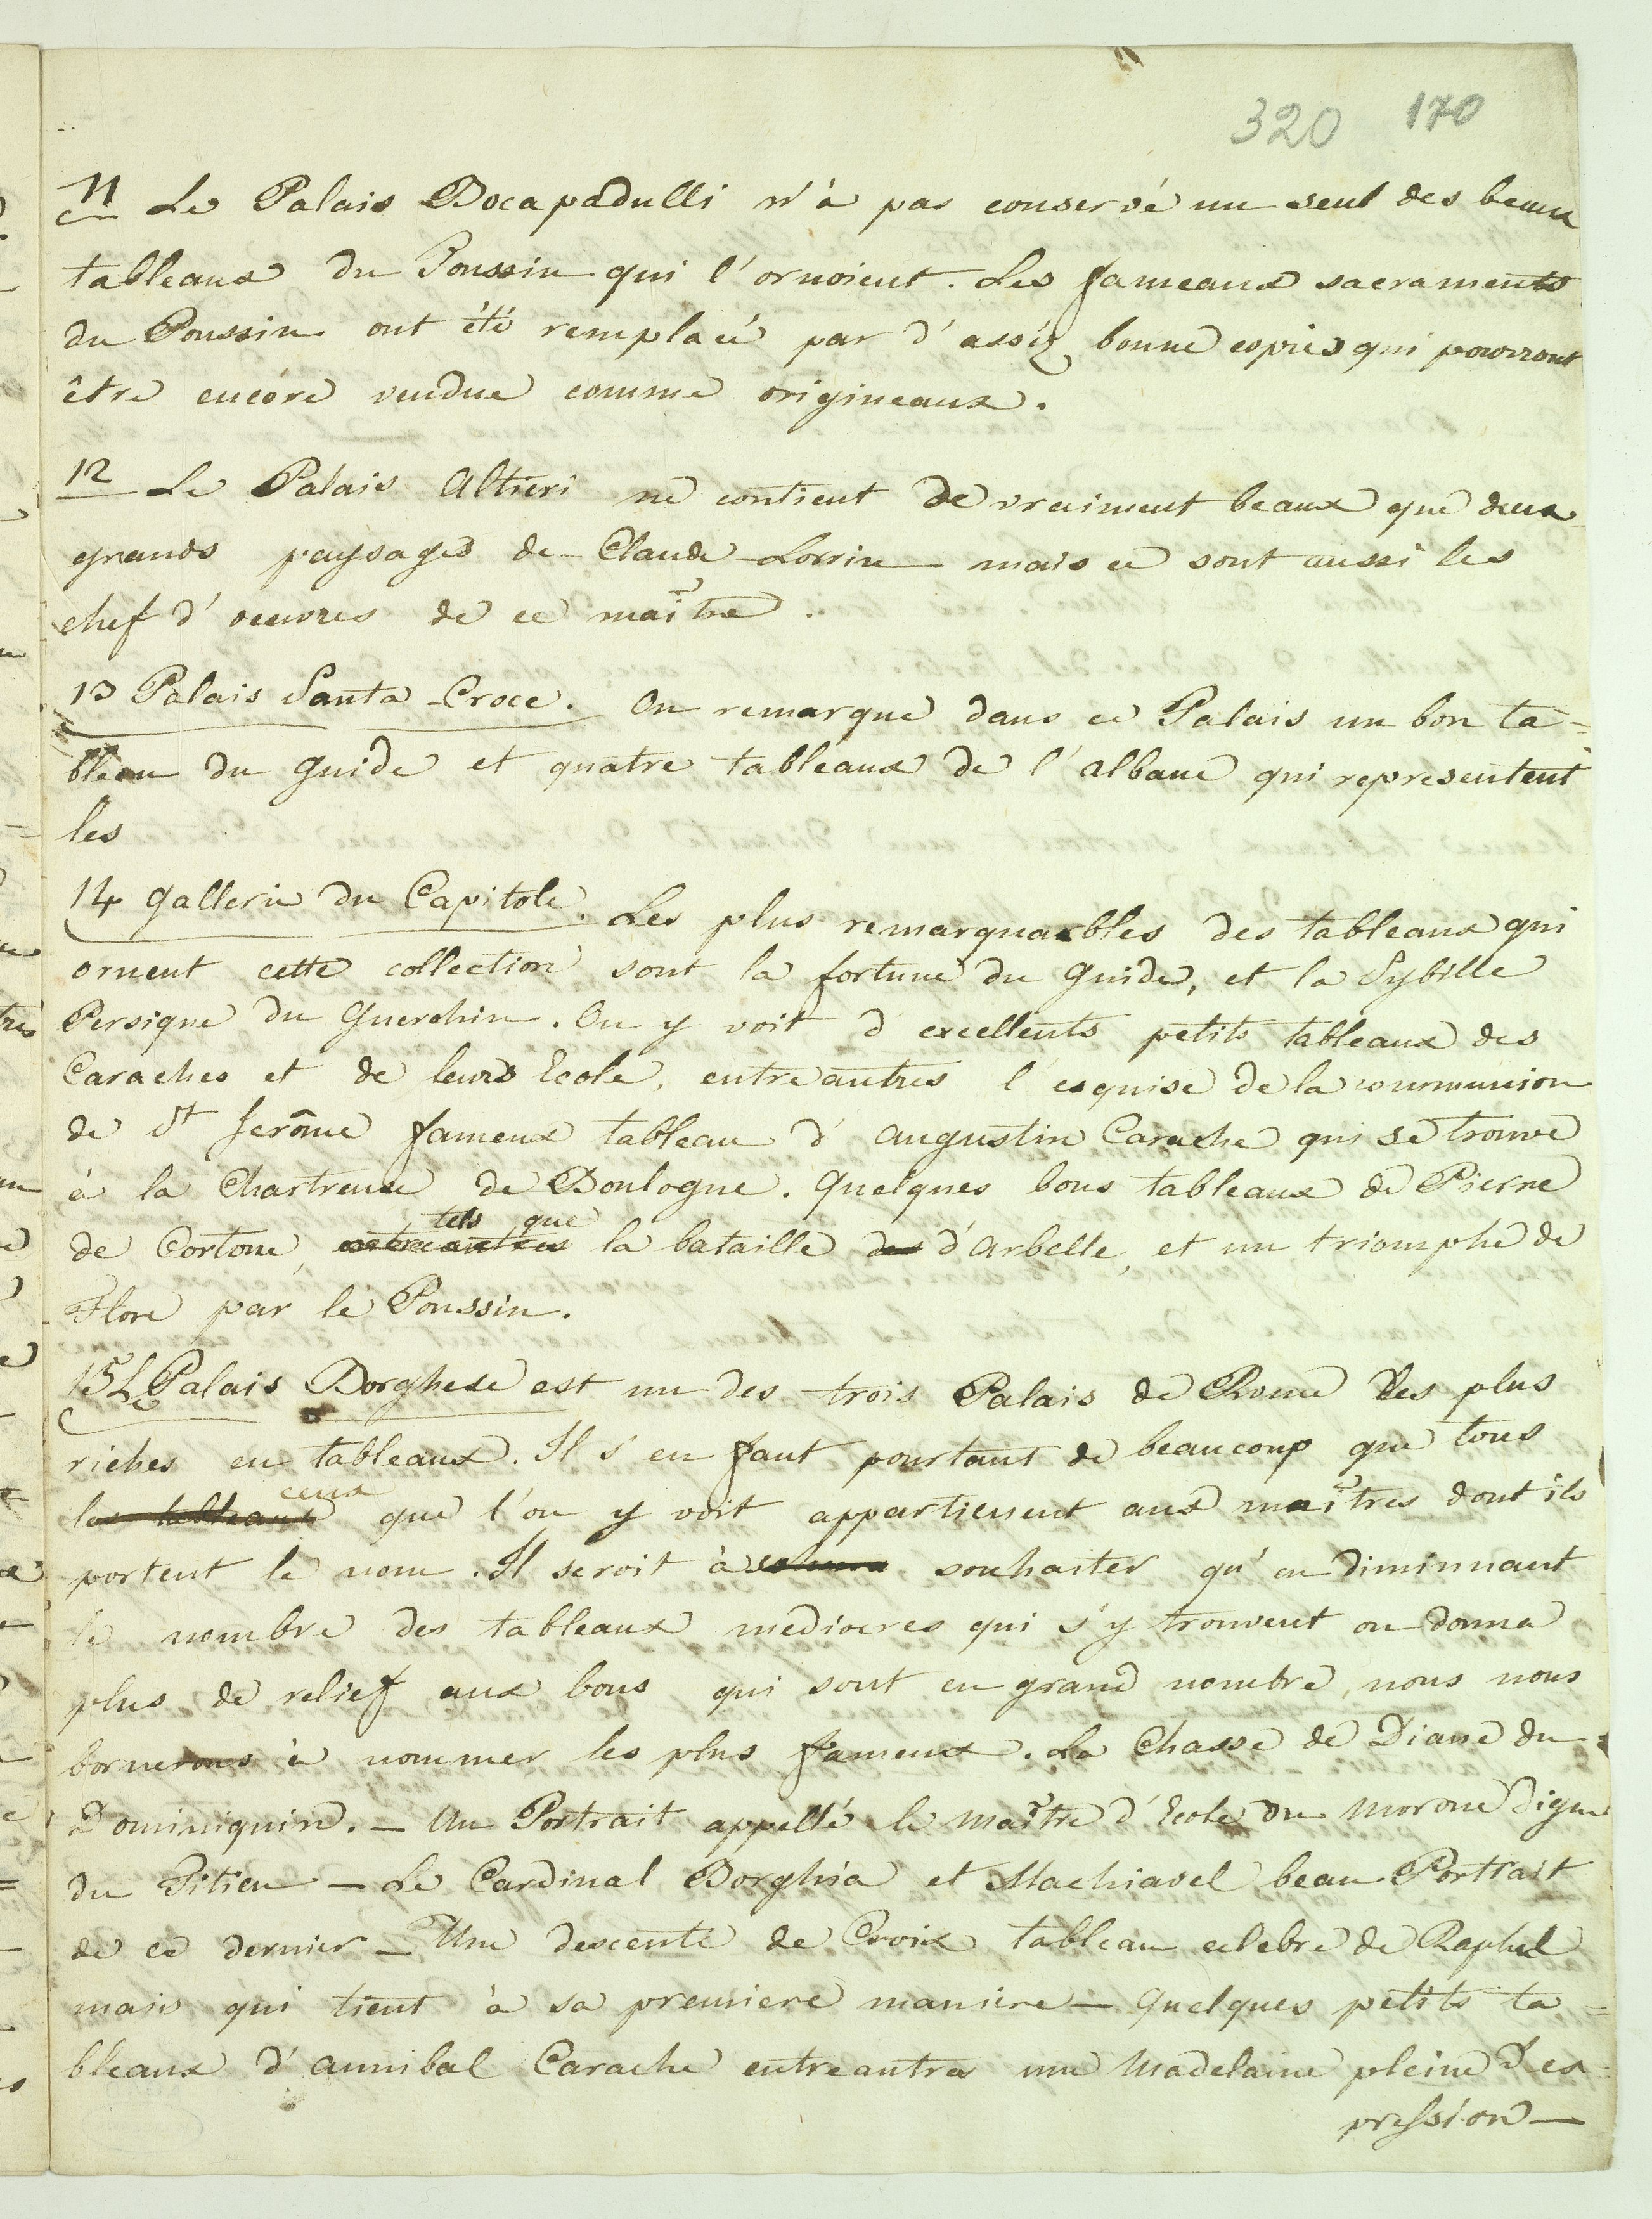 320 170
11 Le Palais Bocapadulli n'à pas conservé un seul des beaux
tableaux du Poussin qui l'ornoient. Les fameaux sacraments
du Poussin ont été remplacé par d'asséz bonne copies qui pourront
être encore vendue comme origineaux.
12 Le Palais Altieri ne contient de vraiment beaux que deux
grands paysages de Claude Lorrin mais ce sont aussi les
chef d'oeuvres de ce maître.
13 Palais Santa-Croce. On remarque dans ce Palais un bon ta=
bleau du Guide et quatre tableaux de l'albane qui representent
les
14 Gallerie du Capitole. Les plus remarquables des tableaux qui
ornent cette collection sont la fortune du Guide, et la Sybille
Persique du Guerchin. On y voit d'excellents petits tableaux des
Caraches et de leurs Ecole, entre autres l'esquise de la communion
de St Jerôme fameux tableau d'Augustin Carache qui se trouve
à la Chartreuse de Boulogne. Quelques bons tableaux de Pierre
tels que
de Cortone, entre autres la bataille des d'Arbelle, et un triomphe de
Flore par le Poussin.
15 Le Palais Borghese est un des trois Palais de Rome les plus
riches en tableaux. Il s'en faut pourtant de beaucoup que tous
ceux
les tableaux que l'on y voit appartienent aux maîtres dont ils
portent le nom. Il seroit à souhaiter qu'en diminuant
le nombre des tableaux mediocres qui s'y trouvent on donna
plus de relief aux bons qui sont en grand nombre, nous nous
bornerons à nommer les plus fameux. La Chasse de Diane du
Dominiquin. – Un Portrait appellé le maître d'Ecole du Morone digne
du Titien – Le Cardinal Borghia et Machiavel beau Portrait
de ce dernier – Une descente de Croix tableau celebre de Raphel
mais qui tient à sa premiere maniere – Quelques petits ta=
bleaux d'annibal Carache entre autres une Madelaine pleine d'ex=
pression –